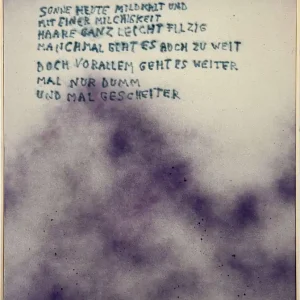 SONNE HEUTE MILDKALT UND
MIT EINER MILCHIGKEIT
HAARE GANZ LEICHT FILZIG
MANCHMAL GEHT ES AUCH ZU WEIT
DOCH VORALLEM GEHT ES WEITER
MAL NUR DUMM
UND MAL GESCHEITER